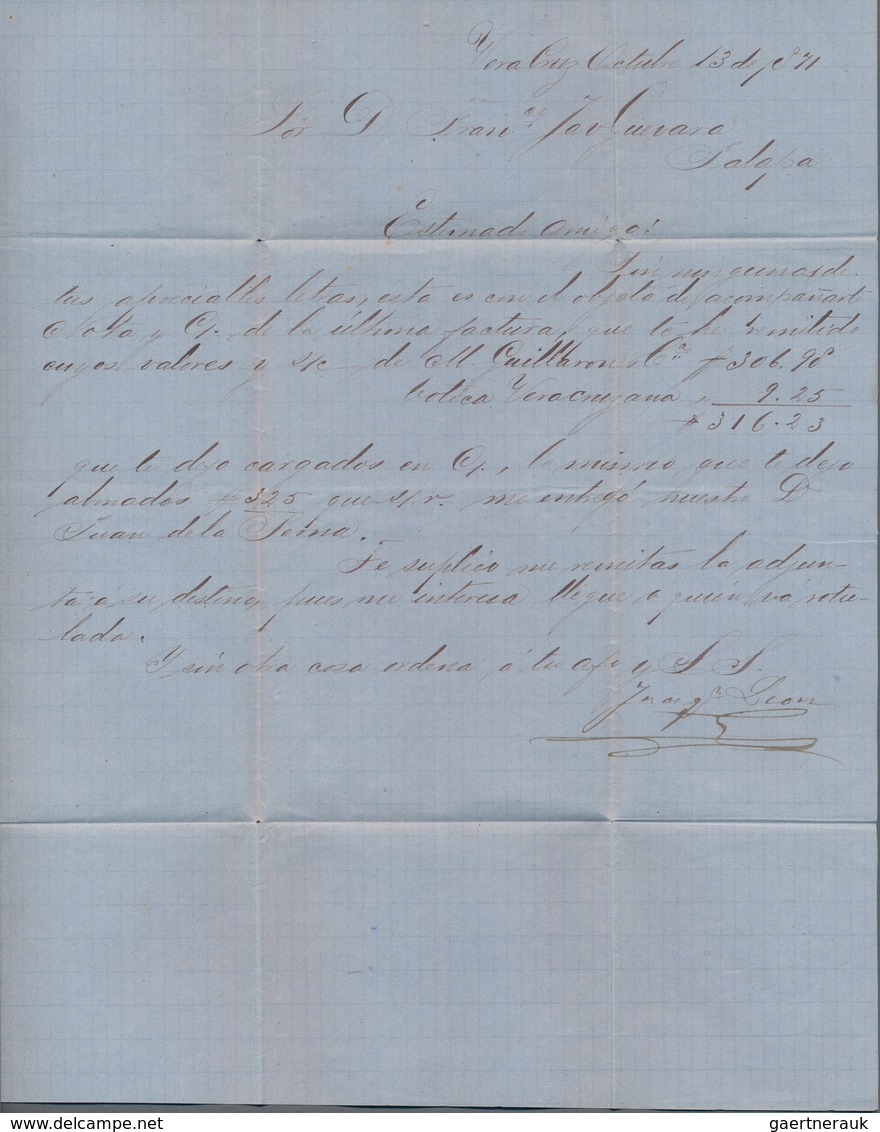 Vera Cruz Octubre 13 de 1871
Sor D Franco Jav Guevara
Jalapa
Estimado Amigo:
Sin ningunas de
tus apreciables letras, esta es con el objeto de acompañarte
Nota y C/. de la última factura, que te he remitido
cuyos valores y s/c de M. Guillaron Ca $ 306.98
botica Veracruzana " 9.25
$ 316.23
que te dejo cargados en C/., lo mismo que te dejo
abonados $ 325 que s/r. me entregó nuestro D
Juan de la Serna.
Te suplico me remitas la adjun-
ta á su destino, pues me interesa llegue a quién vá rotu-
lada.
Y sin otra cosa ordena á tu afo y S S.
León
gaertnerauk